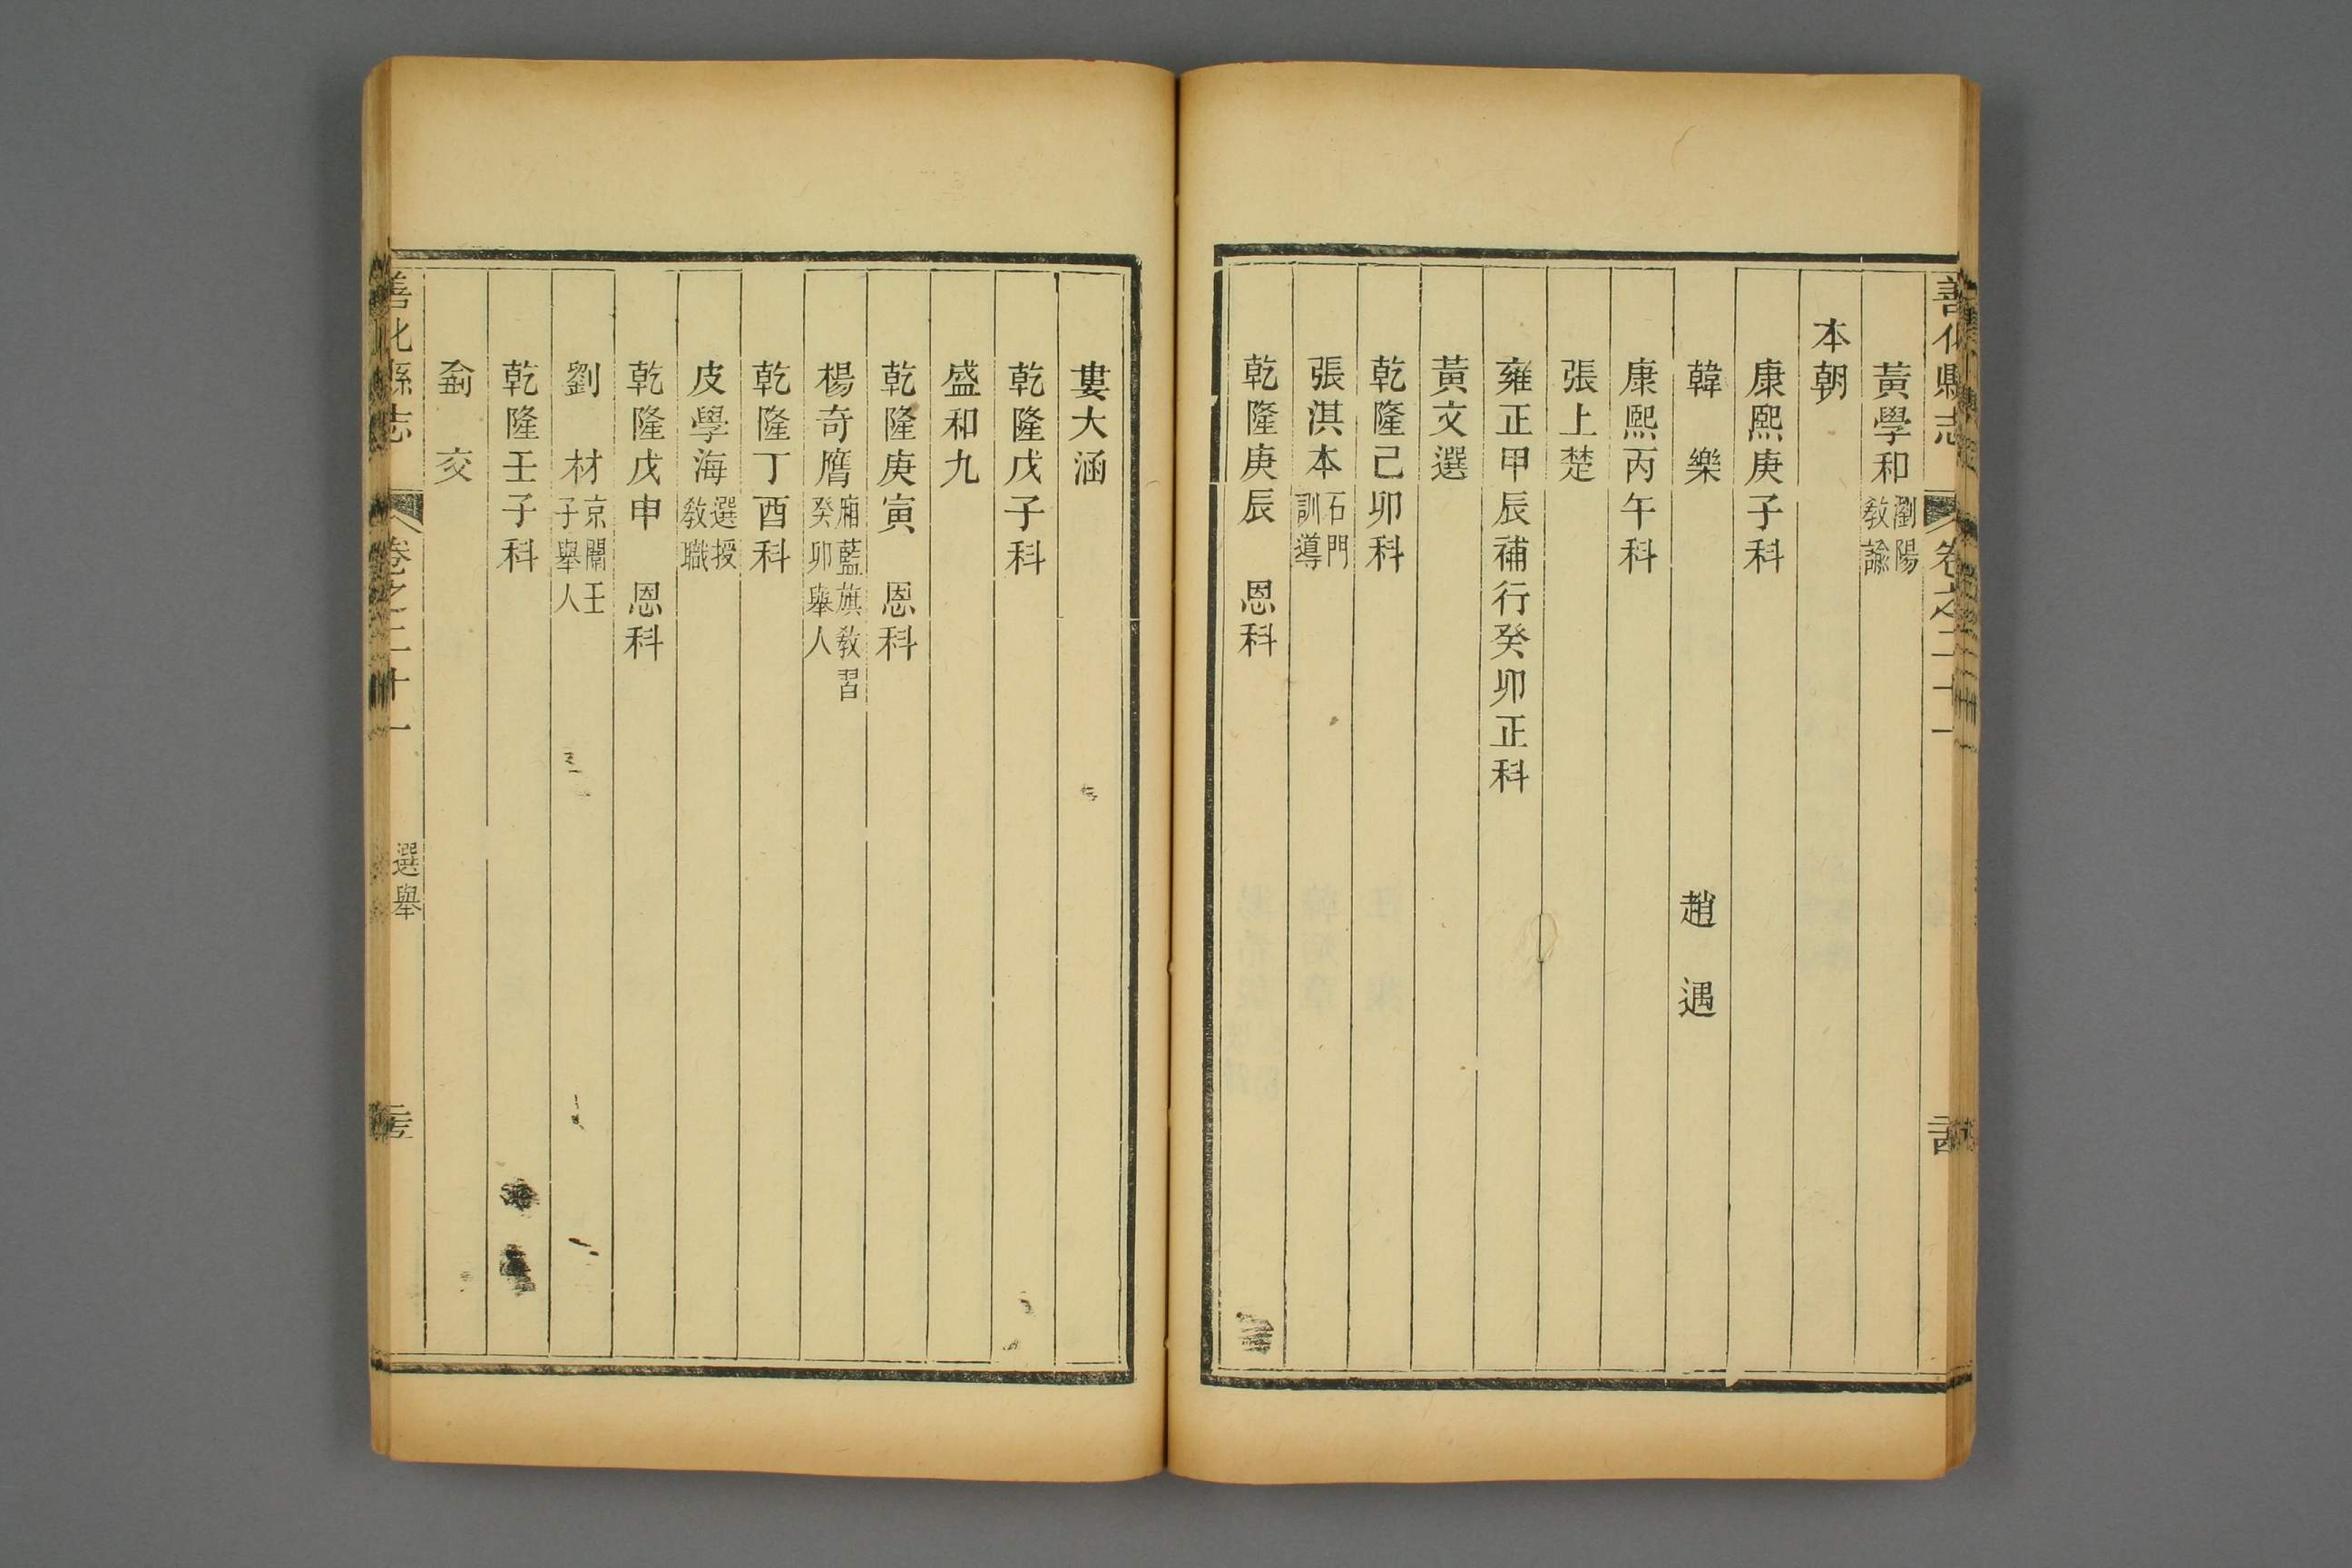 善化縣志 卷之二十一
黃學和 瀏陽教諭
本朝
康熙庚子科
韓 樂 趙 遇
康熙丙午科
張上楚
雍正甲辰補行癸卯正科
黃文選
乾隆己卯科
張淇本 石門訓導
乾隆庚辰 恩科
婁大涵
乾隆戊子科
盛和九
乾隆庚寅 恩科
楊奇膺 廂藍旗教習癸卯舉人
乾隆丁酉科
皮學海 選授教職
乾隆戊申 恩科
劉 材 京闈壬子舉人
乾隆壬子科
俞 交
善化縣志 卷之二十一 選舉